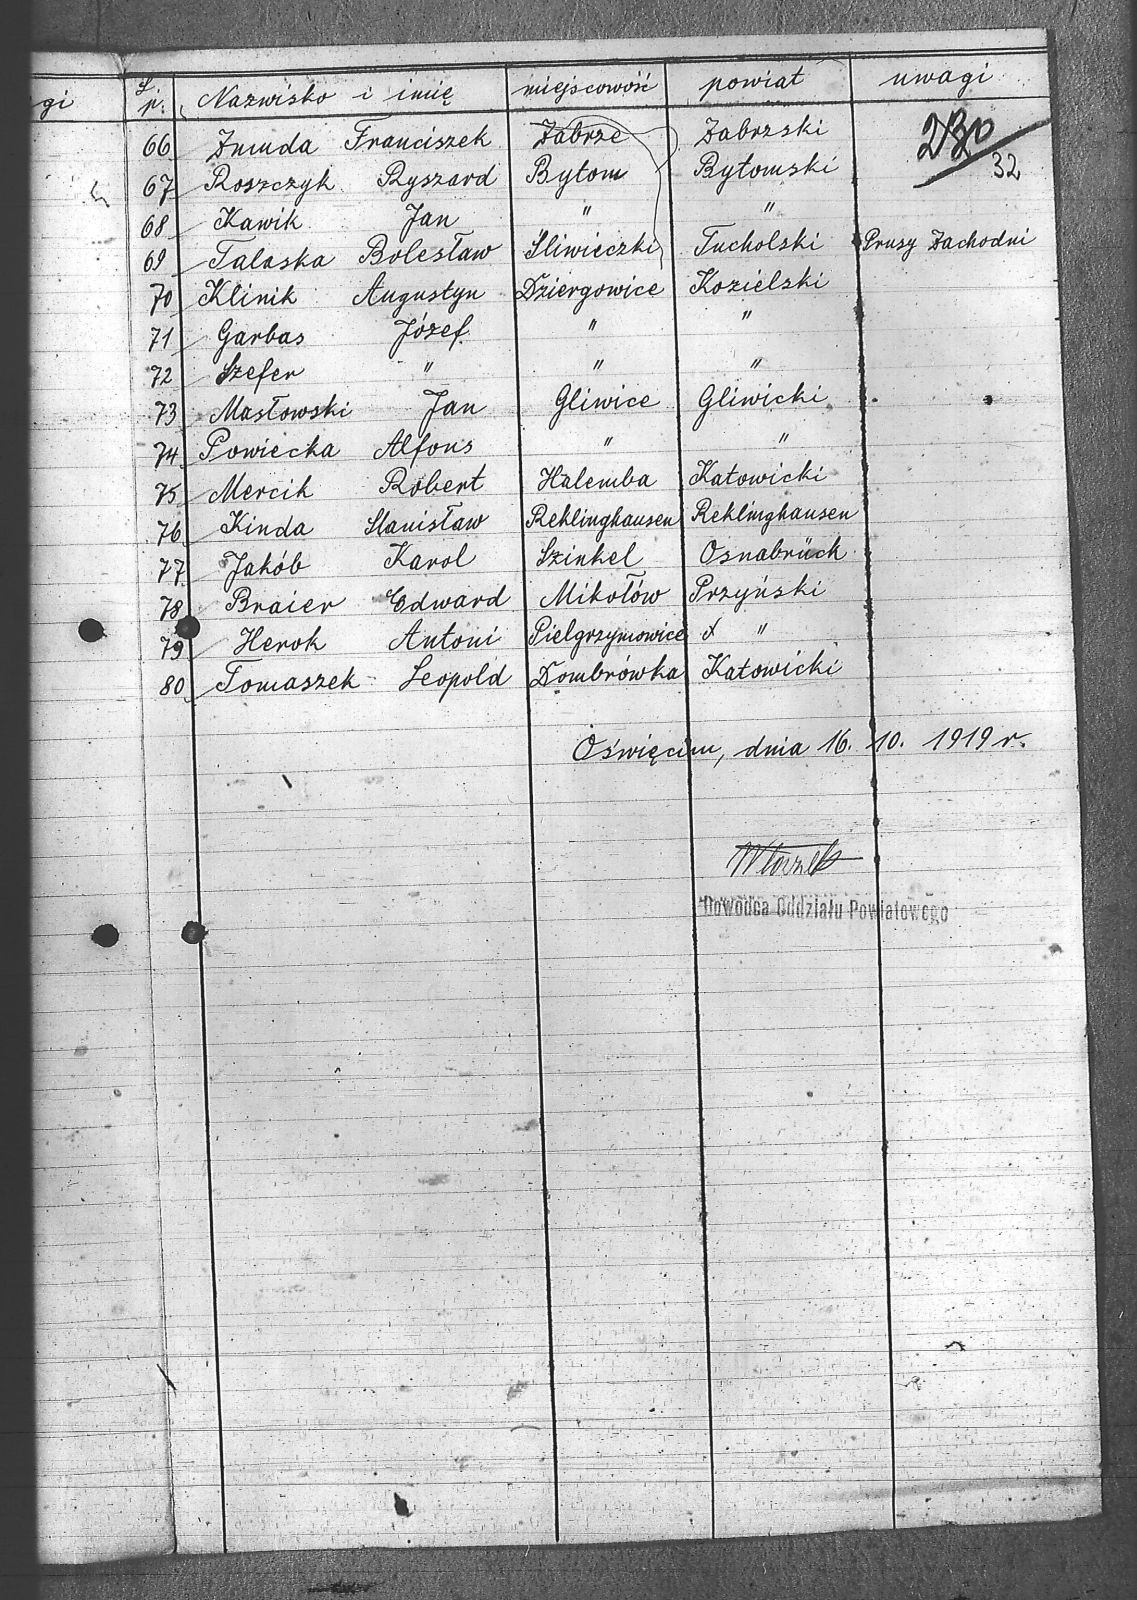 gi
L. p. Nazwisko i imię miejscowość powiat uwagi
230
66 Żmuda Franciszek Zabrze Zabrzski
32
67 Roszczyk Ryszard Bytom Bytomski
68 Kawik Jan " "
69 Talaska Bolesław Śliwieczki Tucholski Prusy Zachodni
70 Klinik Augustyn Dziergowice Kozielski
71 Garbas Józef " "
72 Szefer " " "
73 Masłowski Jan Gliwice Gliwicki
74 Powiecka Alfons " "
75 Mercik Robert Halemba Katowicki
76 Kinda Stanisław Reklinghausen Reklinghausen
77 Jakób Karol Szinkel Osnabrück
78 Braier Edward Mikołów Przyński
79 Herok Antoni Pielgrzymowice "
80 Tomaszek Leopold Dombrówka Katowicki
Oświęcim, dnia 16. 10. 1919 r.
Dowódca Oddziału Powiatowego